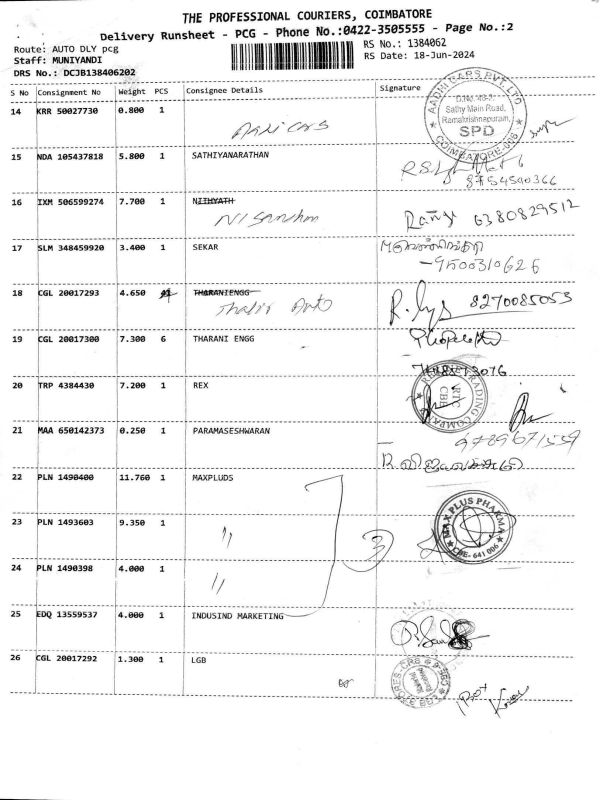 THE PROFESSIONAL COURIERS, COIMBATORE
Delivery Runsheet - PCG - Phone No.:0422-3505555 - Page No.:2
Route: AUTO DLY pcg
RS No.: 1384062
Staff: MUNIYANDI
RS Date: 18-Jun-2024
DRS No.: DCJB138406202
S No Consignment No Weight PCS Consignee Details Signature
14 KRR 50027730 0.800 1
AADHI CARS PVT LTD
Sathy Main Road,
Ramakrishnapuram,
SPD
COIMBATORE-006
15 NDA 105437818 5.800 1 SATHIYANARATHAN
8754540366
16 IXM 506599274 7.700 1 NITHYATH
Ranji 6380829512
17 SLM 348459920 3.400 1 SEKAR
-9500310626
18 CGL 20017293 4.650 THARANIENGG
Thalir Auto
8270085053
19 CGL 20017300 7.300 6 THARANI ENGG
20 TRP 4384430 7.200 1 REX
RTC
CBE
21 MAA 650142373 0.250 1 PARAMASESHWARAN
9789671559
22 PLN 1490400 11.760 1 MAXPLUDS
23 PLN 1493603 9.350 1 "
3
MAX PLUS PHARMA
CBE- 641 006
24 PLN 1490398 4.000 1 "
25 EDQ 13559537 4.000 1 INDUSIND MARKETING
26 CGL 20017292 1.300 1 LGB